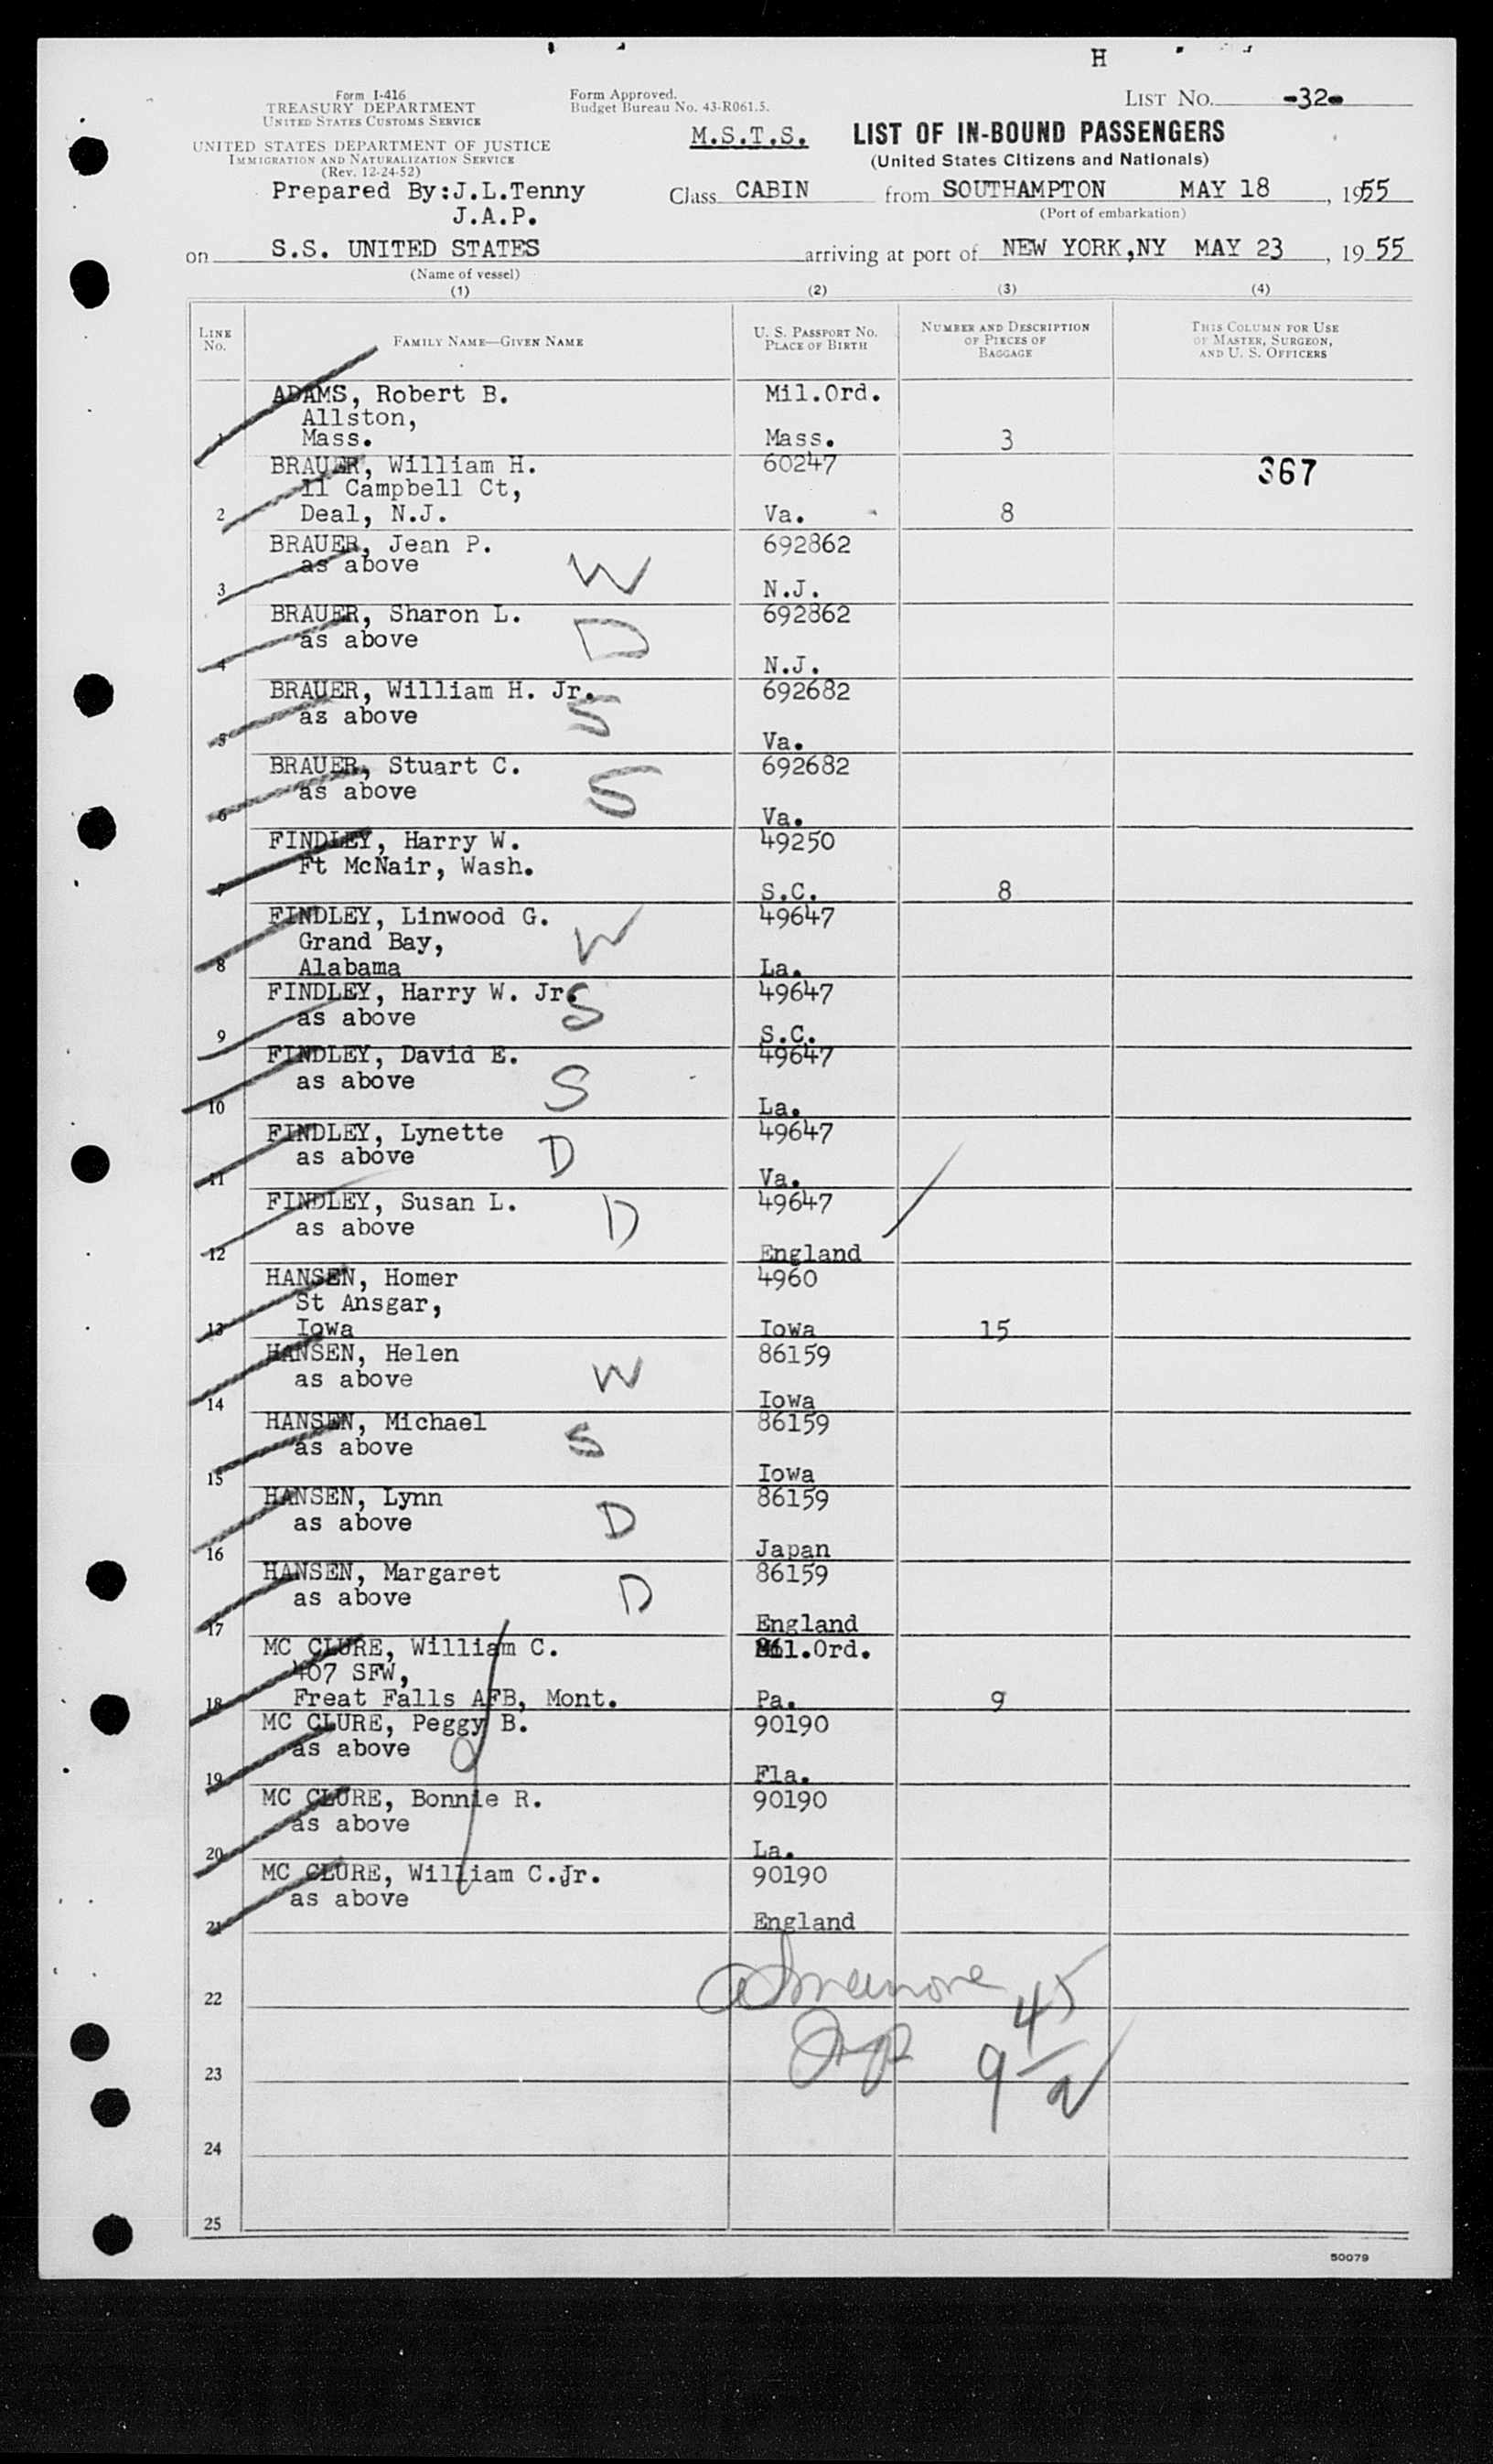 H
Form I-416
TREASURY DEPARTMENT
UNITED STATES CUSTOMS SERVICE
UNITED STATES DEPARTMENT OF JUSTICE
IMMIGRATION AND NATURALIZATION SERVICE
(Rev. 12-24-52)
Form Approved.
Budget Bureau No. 43-R061.5.
LIST NO. -32-
M.S.T.S. LIST OF IN-BOUND PASSENGERS
(United States Citizens and Nationals)
Prepared By:J.L.Tenny
J.A.P.
Class CABIN from SOUTHAMPTON MAY 18, 1955
(Port of embarkation)
on S.S. UNITED STATES arriving at port of NEW YORK,NY MAY 23, 1955
(Name of vessel)
(1) (2) (3) (4)
LINE NO. FAMILY NAME—GIVEN NAME U. S. PASSPORT NO. PLACE OF BIRTH NUMBER AND DESCRIPTION OF PIECES OF BAGGAGE THIS COLUMN FOR USE OF MASTER, SURGEON, AND U. S. OFFICERS
ADAMS, Robert B. Mil.Ord.
Allston,
1 Mass. Mass. 3
BRAUER, William H. 60247 367
11 Campbell Ct,
2 Deal, N.J. Va. 8
BRAUER, Jean P. 692862
as above W
3 N.J.
BRAUER, Sharon L. 692862
as above D
4 N.J.
BRAUER, William H. Jr. 692682
as above S
5 Va.
BRAUER, Stuart C. 692682
as above S
6 Va.
FINDLEY, Harry W. 49250
Ft McNair, Wash.
7 S.C. 8
FINDLEY, Linwood G. 49647
Grand Bay, W
8 Alabama La.
FINDLEY, Harry W. Jr. 49647
as above S
9 S.C.
FINDLEY, David E. 49647
as above S
10 La.
FINDLEY, Lynette 49647
as above D
11 Va.
FINDLEY, Susan L. 49647
as above D
12 England
HANSEN, Homer 4960
St Ansgar,
13 Iowa Iowa 15
HANSEN, Helen 86159
as above W
14 Iowa
HANSEN, Michael 86159
as above S
15 Iowa
HANSEN, Lynn 86159
as above D
16 Japan
HANSEN, Margaret 86159
as above D
17 England
MC CLURE, William C. Mil.Ord.
407 SFW,
18 Freat Falls AFB, Mont. Pa. 9
MC CLURE, Peggy B. 90190
as above
19 Fla.
MC CLURE, Bonnie R. 90190
as above
20 La.
MC CLURE, William C.Jr. 90190
as above
21 England
22 45
23 9
24
25
50079